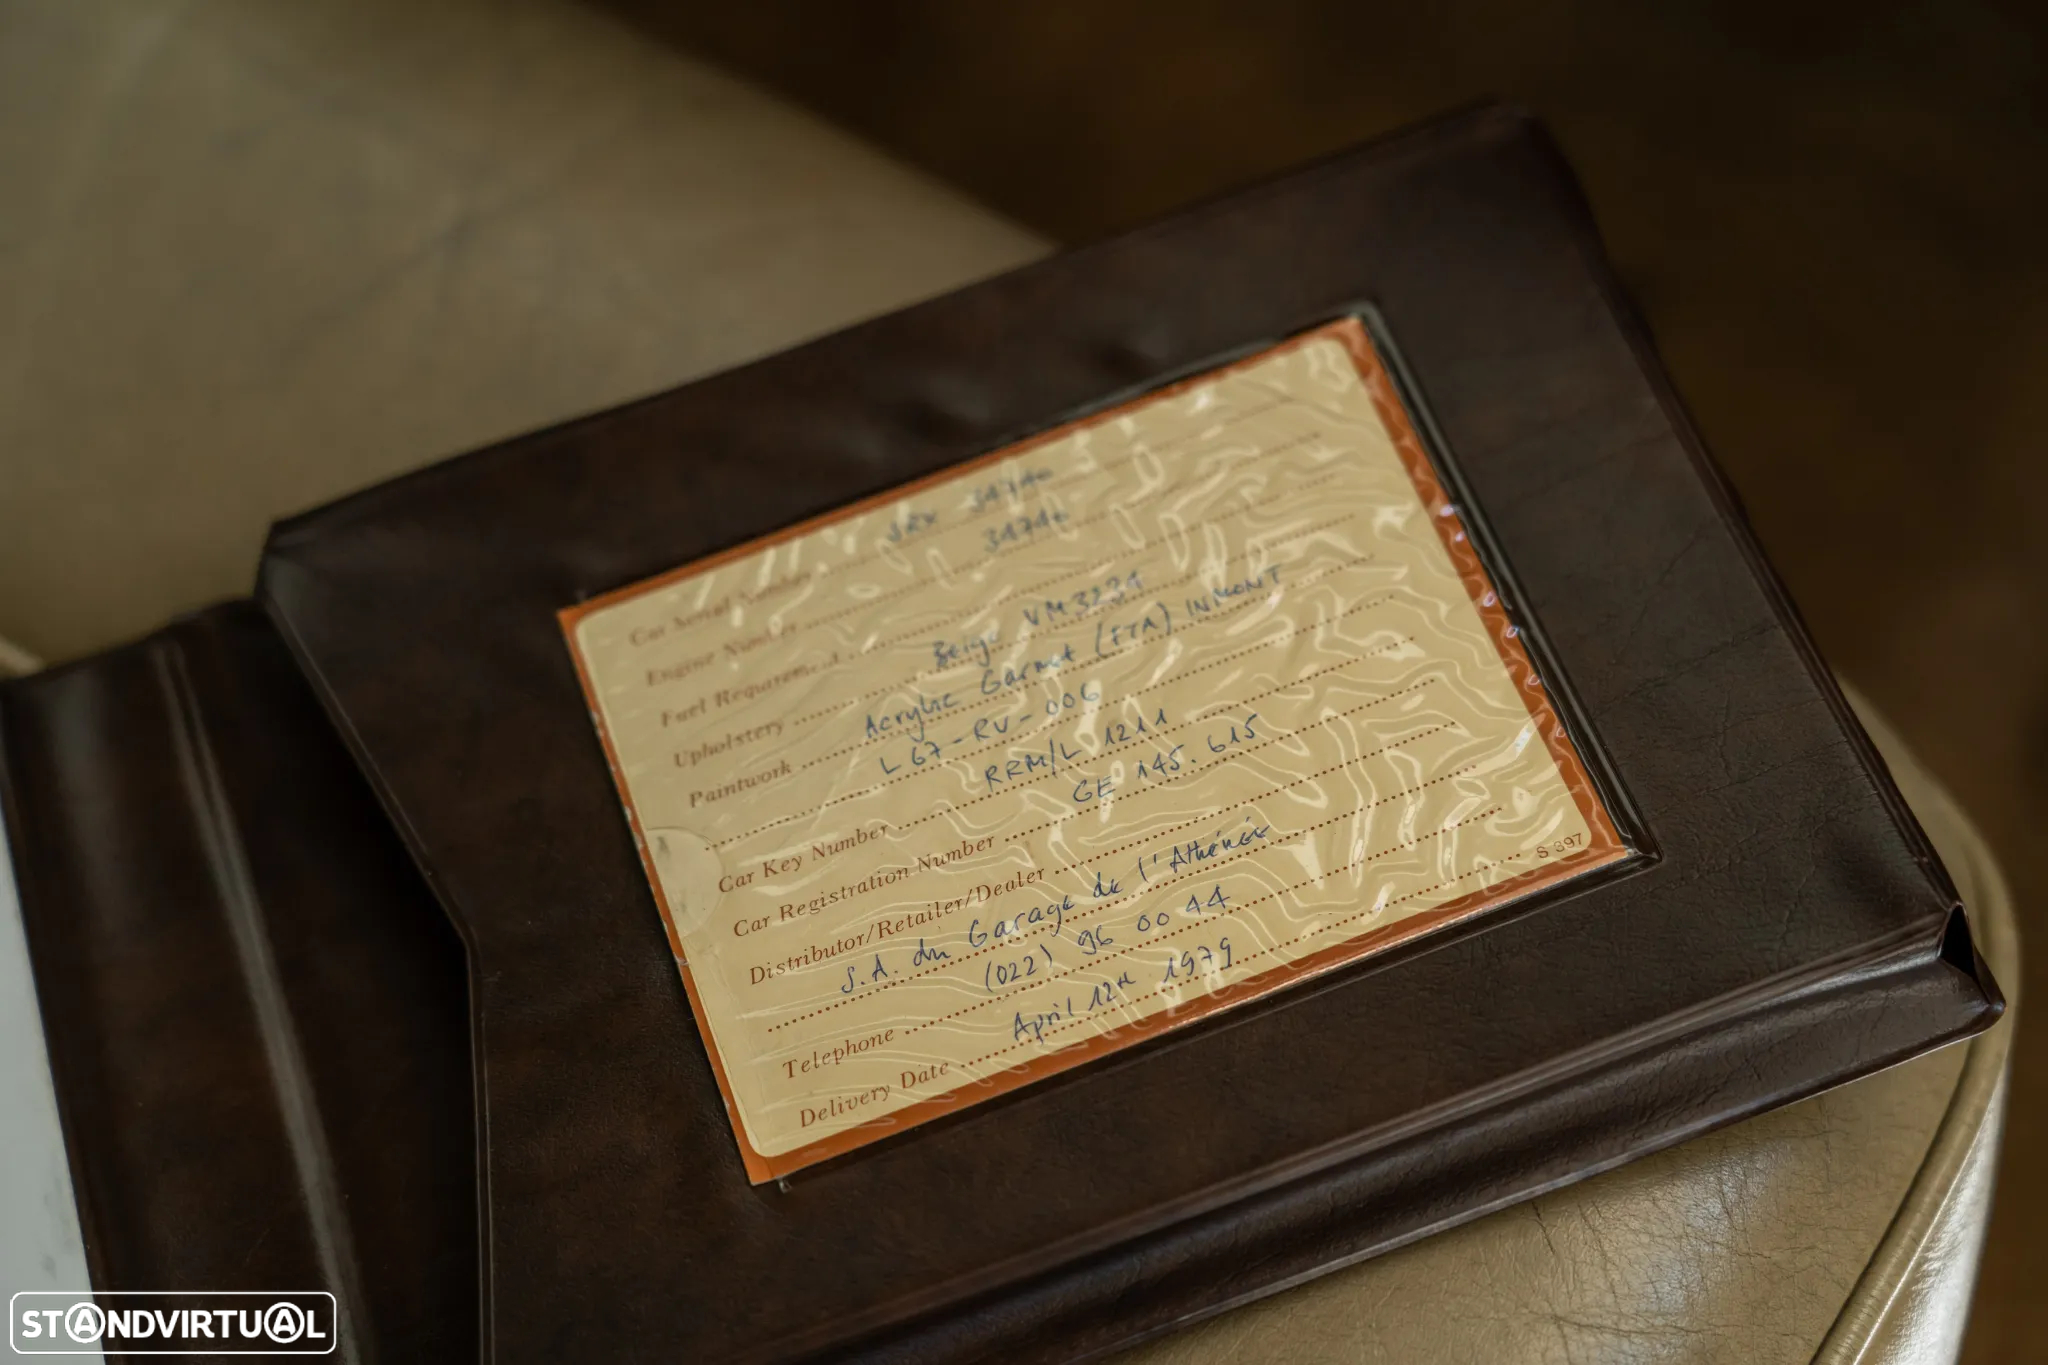 Car Serial Number SRX 34746
Engine Number 34746
Fuel Requirement
Upholstery Beige VM3234
Paintwork Acrylic Garnet (FTA) INMONT
L67-RV-006
Car Key Number RRM/L 1211
Car Registration Number GE 145.615
Distributor/Retailer/Dealer
S.A. du Garage de l'Athénée
Telephone (022) 96 00 44
Delivery Date April 12th 1979
S 897
STANDVIRTUAL